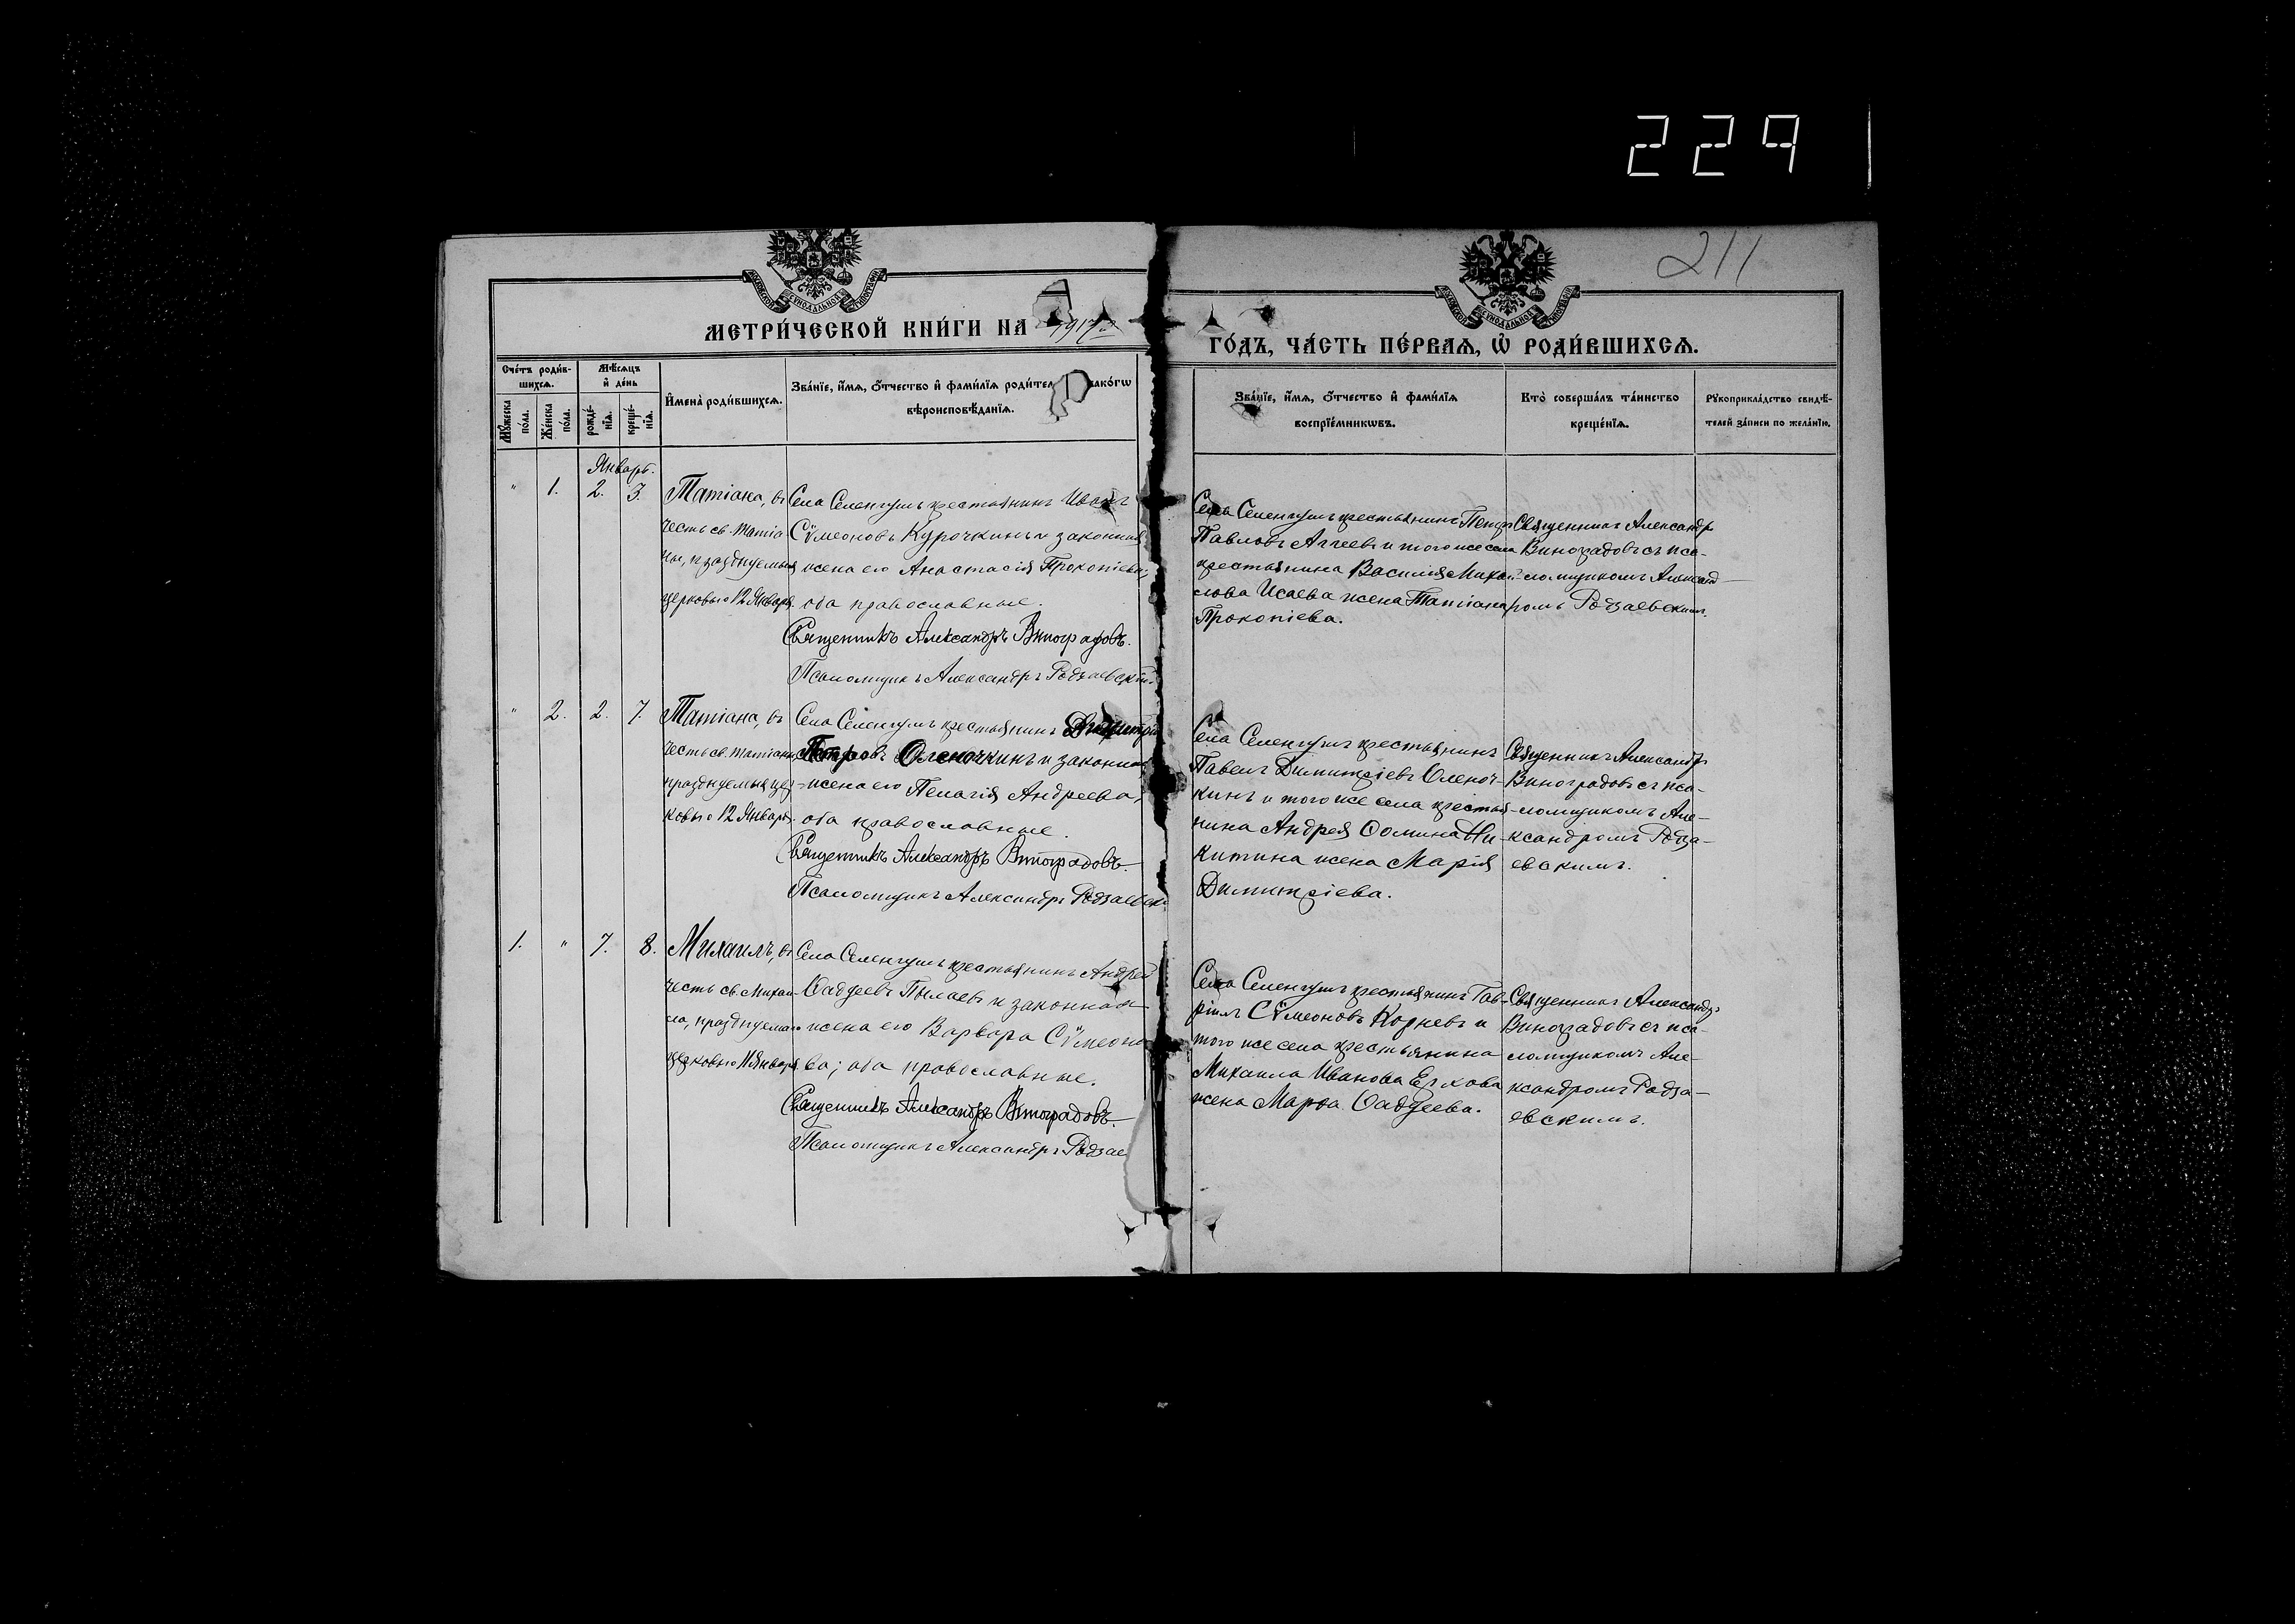 229
211
МОСКОВСКОЙ СѴНОДАЛЬНОЙ ТИПОГРАФІИ
МОСКОВСКОЙ СѴНОДАЛЬНОЙ ТИПОГРАФІИ
МЕТРИ́ЧЕСКОЙ КНИ́ГИ НА 1917 й
ГО́ДЪ, ЧА́СТЬ ПЕ́РВАЯ, Ѡ҆ РОДИ́ВШИХСЯ.
Сче́тъ роди́в-
шихся.
Мѣ́сяцъ
и҆ де́нь
Мꙋ́жеска
по́ла.
Же́нска
по́ла.
рожде́-
нїя.
креще́-
нїя.
И҆мена̀ роди́вшихся.
Зва́нїе, и҆́мя, ѻ҆́тчество и҆ фами́лїя роди́тел како́гѡ
вѣроисповѣ́данїя.
Зва́нїе, и҆́мя, ѻ҆́тчество и҆ фами́лїя
воспрїе́мникѡвъ.
Кто̀ соверша́лъ та́инство
креще́нїя.
Рꙋкоприкла́дство свидѣ́-
телей за́писи по жела́нїю.
Январь.
" 1. 2. 3.
Татіана, въ
честь св. Татіа-
ны, празднуемыя
церковью 12 Января.
Села Селенгушъ крестьянинъ Иванъ
Сѵмеоновъ Курочкинъ и законная
жена его Анастасія Прокопіева;
оба православные.
Священникъ Александръ Виноградовъ.
Псаломщикъ Александръ Родзаевскій.
Села Селенгушъ крестьянинъ Петръ
Павловъ Аггеевъ и того же села
крестьянина Василія Михай-
лова Исаева жена Татіана
Прокопіева.
Священникъ Александръ
Виноградовъ съ пса-
ломщикомъ Александ-
ромъ Родзаевскимъ.
" 2. 2. 7.
Татіана, въ
честь св. Татіаны,
празднуемыя цер-
ковью 12 Января.
Села Селенгушъ крестьянинъ Димитрій
Петровъ Оленочкинъ и законная
жена его Пелагія Андреева,
оба православные.
Священникъ Александръ Виноградовъ.
Псаломщикъ Александръ Родзаевскі
Села Селенгушъ крестьянинъ
Павелъ Димитріевъ Оленоч-
кинъ и того же села крестья-
нина Андрея Ѳомина Ни-
китина жена Марія
Димитріева.
Священникъ Александръ
Виноградовъ съ пса-
ломщикомъ Але-
ксандромъ Родза-
евскимъ.
1. " 7. 8.
Михаилъ, въ
честь св. Михаи-
ла, празднуемаго
церковью 11 Января
Села Селенгушъ крестьянинъ Андрей
Ѳаддеевъ Пылаевъ и законная
жена его Варвара Сѵмеоно
ва; оба православные.
Священникъ Александръ Виноградовъ.
Псаломщикъ Александръ Родзае
Села Селенгушъ крестьянинъ Гав-
ріилъ Сѵмеоновъ Корневъ и
того же села крестьянина
Михаила Иванова Ерхова
жена Марѳа Ѳаддеева.
Священникъ Александръ
Виноградовъ съ пса-
ломщикомъ Але-
ксандромъ Родза-
евскимъ.